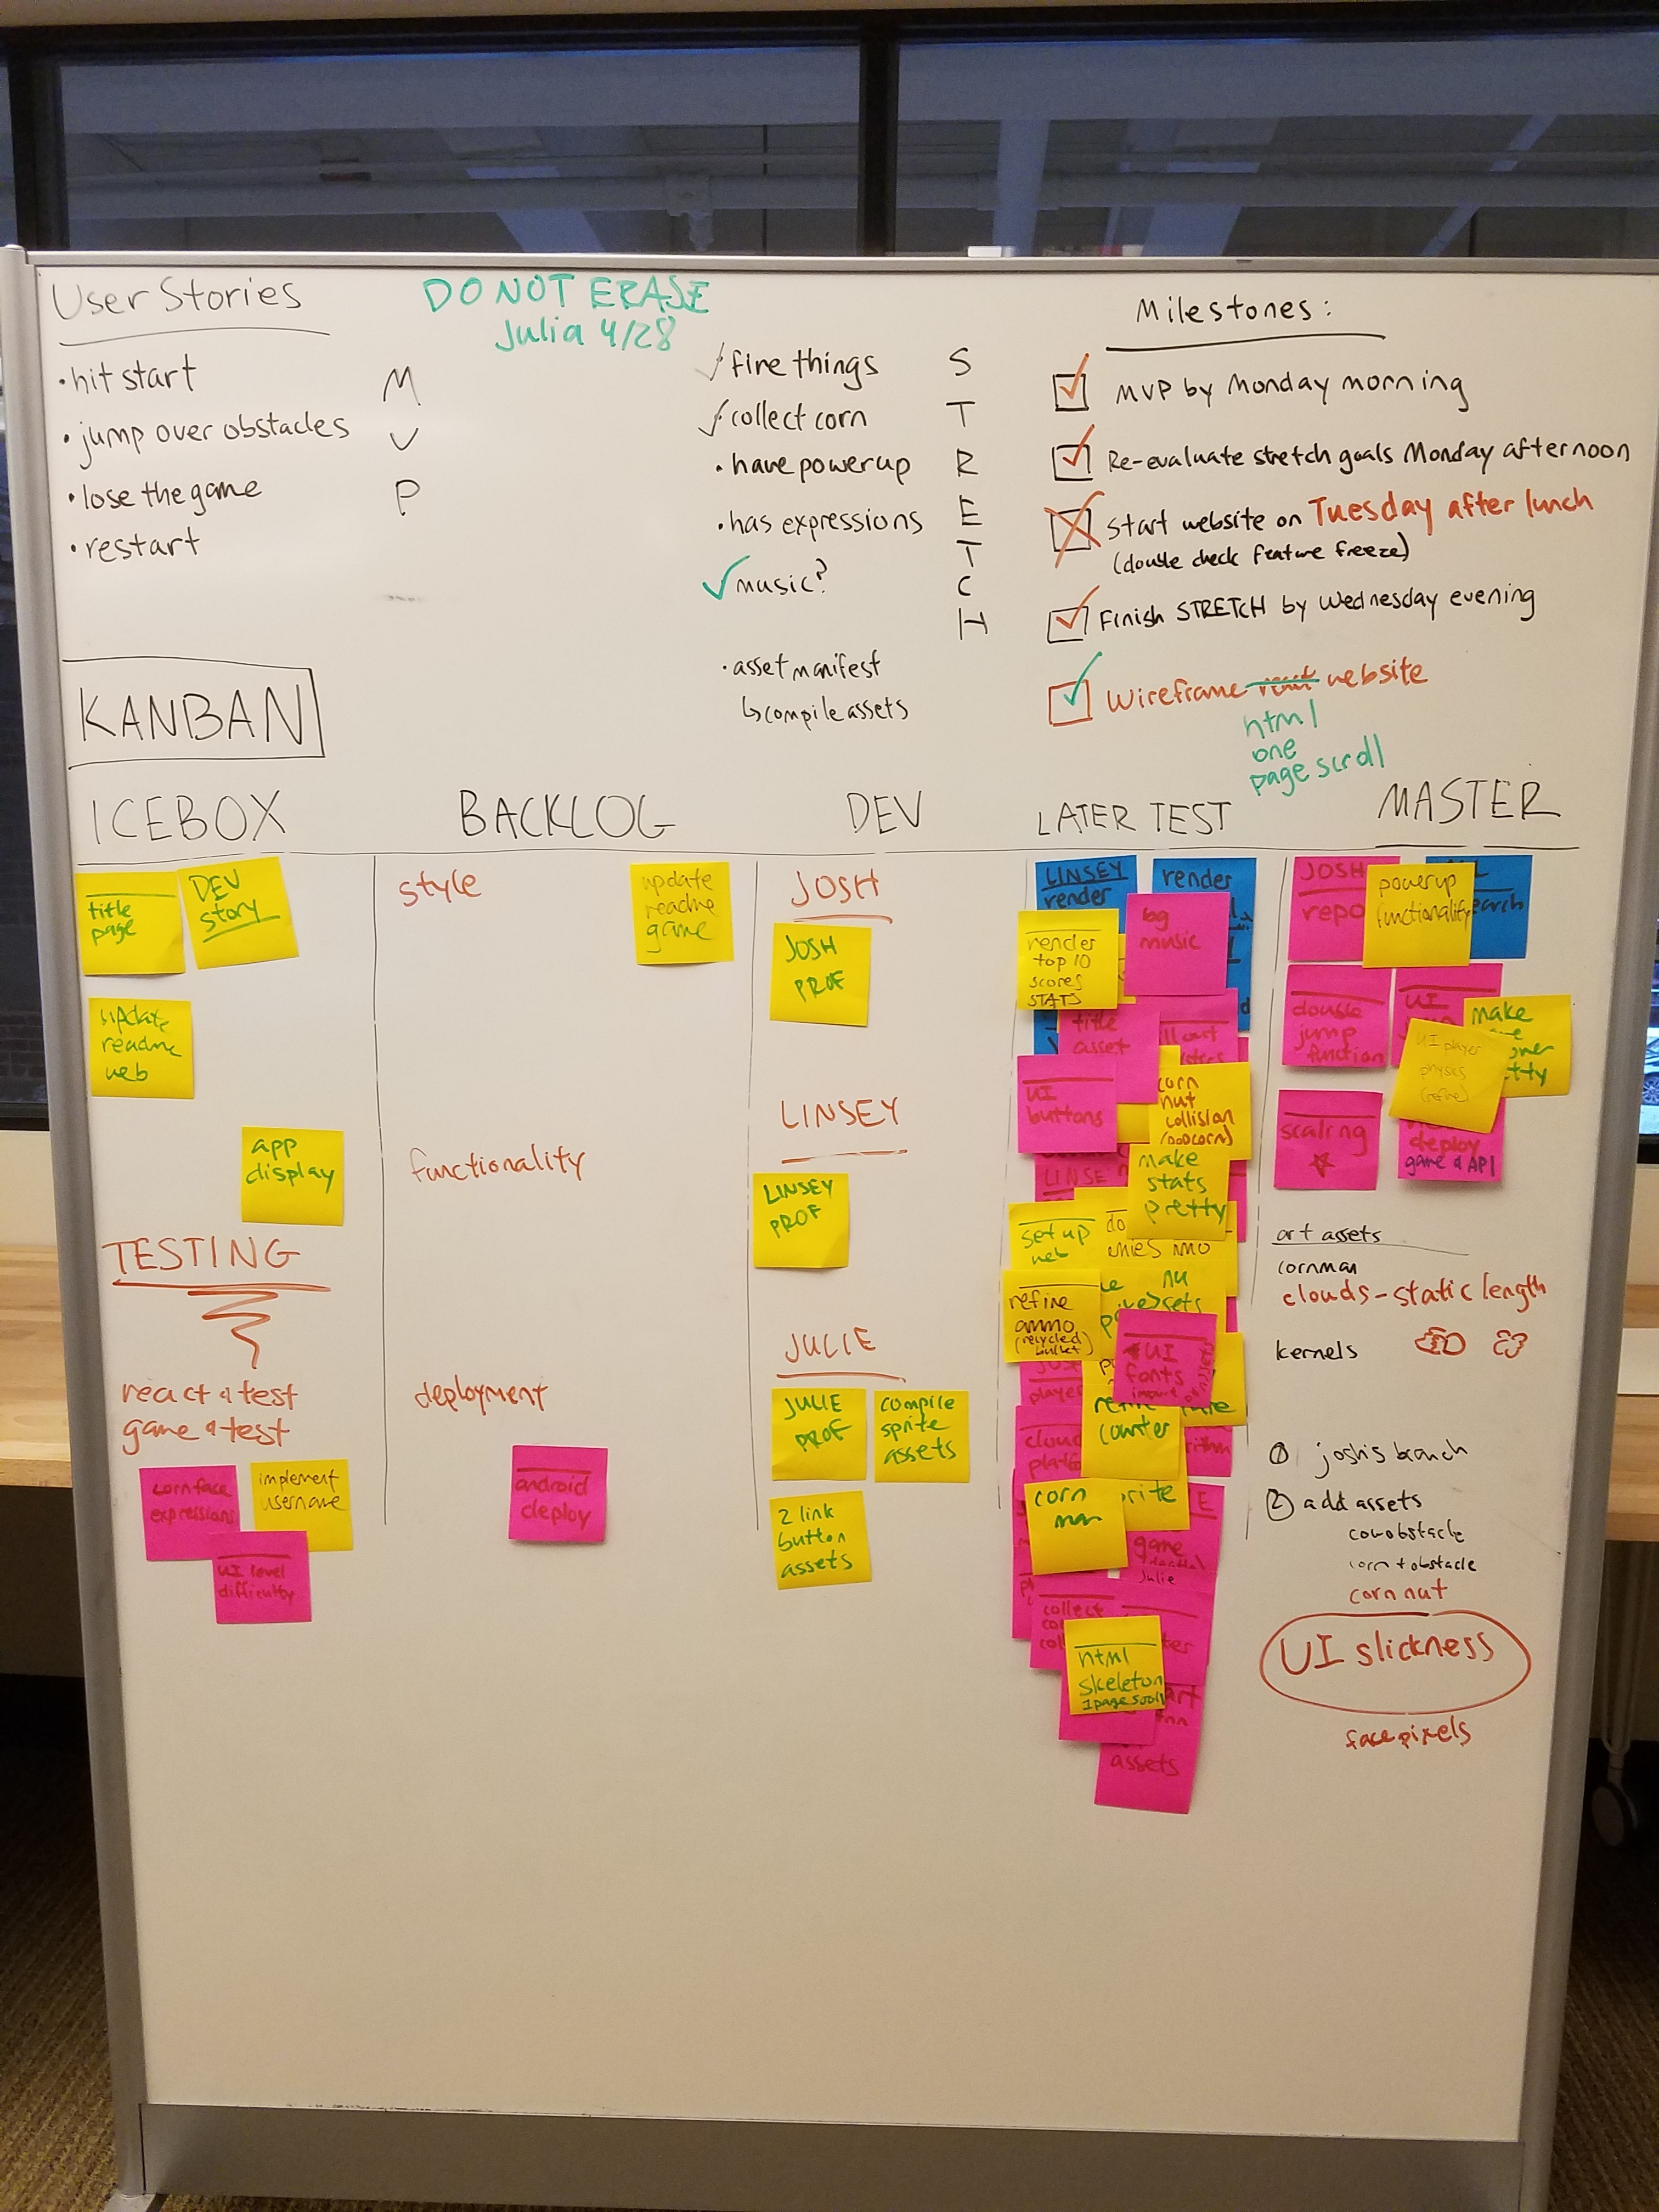 User Stories
• hit start
• jump over obstacles
• lose the game
• restart
M
V
P
DO NOT ERASE
Julia 4/28
✓ fire things
✓ collect corn
• have powerup
• has expressions
✓ music?
• asset manifest
↳ compile assets
S
T
R
E
T
C
H
Milestones:
MVP by Monday morning
Re-evaluate stretch goals Monday afternoon
Start website on Tuesday after lunch
(double check feature freeze)
Finish STRETCH by Wednesday evening
Wireframe website
html
one
page scroll
KANBAN
ICEBOX
title
page
DEV
story
update
readme
web
app
display
TESTING
react & test
game & test
corn face
expressions
implement
username
UI level
difficulty
BACKLOG
style
update
readme
game
functionality
deployment
android
deploy
DEV
JOSH
JOSH
PROF
LINSEY
LINSEY
PROF
JULIE
JULIE
PROF
compile
sprite
assets
2 link
button
assets
LATER TEST
LINSEY
render
render
render
top 10
scores
STATS
bg
music
title
asset
UI
buttons
corn
nut
collision
(popcorn)
make
stats
pretty
set up
web
refine
ammo
(recycled
bullet)
UI
fonts
import
player
counter
corn
man
game
Julie
collect
html
skeleton
1 page scroll
assets
MASTER
JOSH
repo
powerup
functionality
double
jump
function
UI
make
UI player
physics
(refine)
scaling
deploy
game & API
art assets
cornman
clouds - static length
kernels
① josh's branch
② add assets
cow obstacle
corn + obstacle
corn nut
UI slickness
face pixels